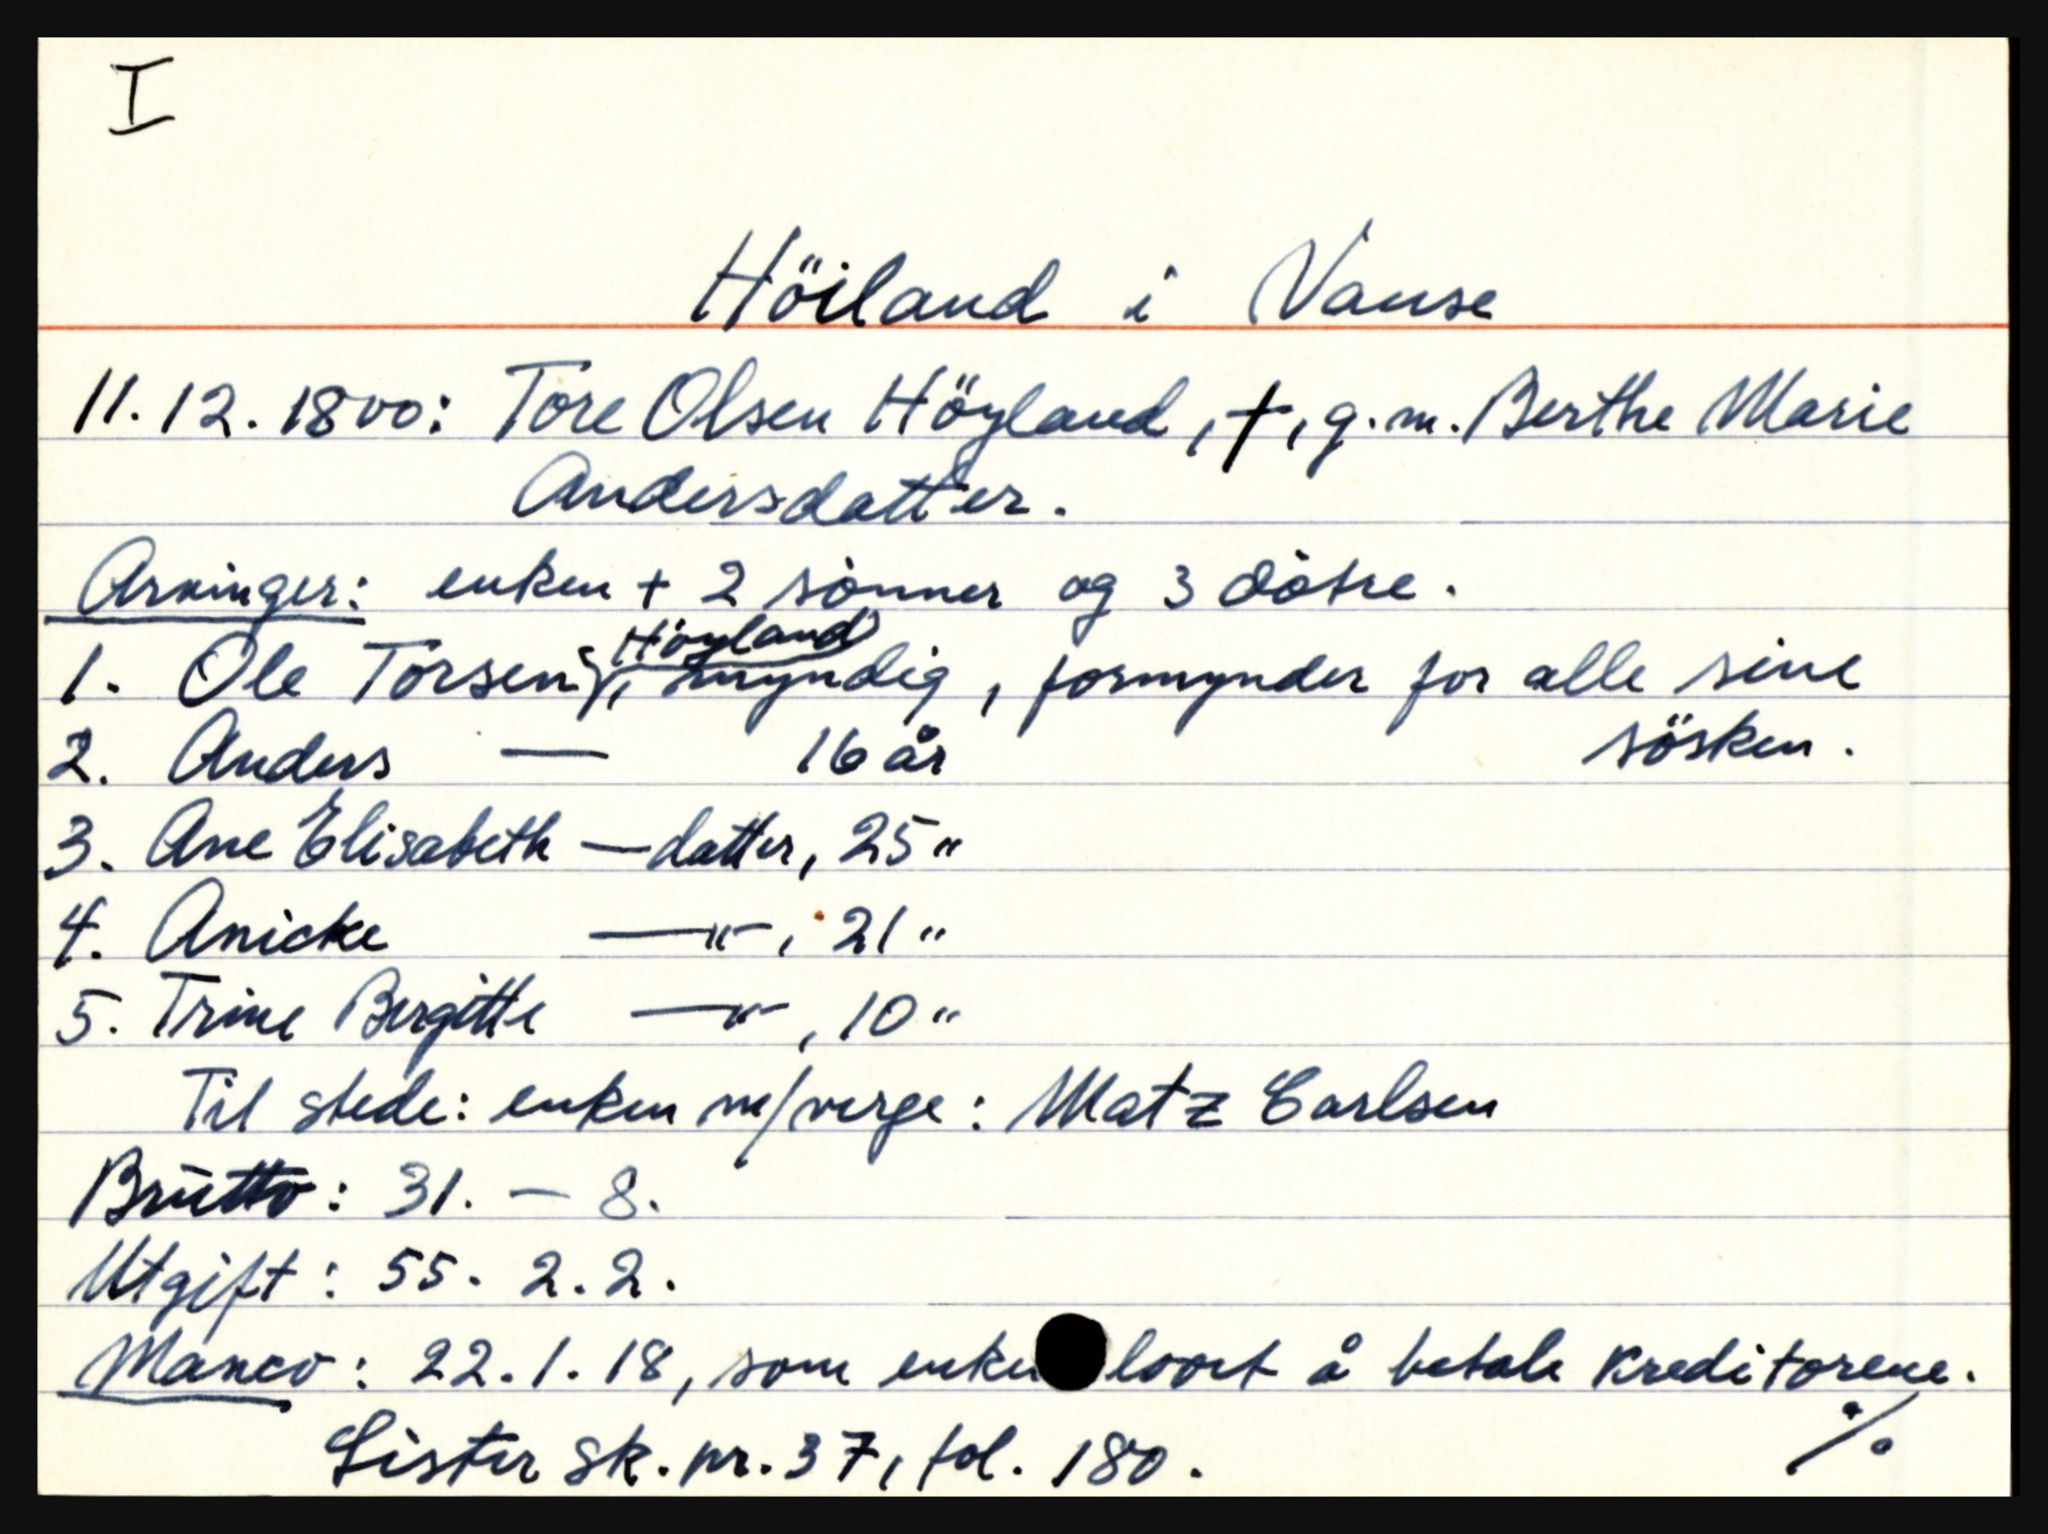 I
Höiland i Vanse
11.12.1800: Tore Olsen Höyland, †, g.m. Berthe Marie
Andersdatter.
Arvinger: enken + 2 sönner og 3 dötre.
1. Ole Torsen Höyland, myndig, formynder for alle sine
2. Anders — 16 år søsken.
3. Ane Elisabeth — datter, 25 "
4. Anicke — " — , 21 "
5. Trine Bergitte — " — , 10 "
Til stede: enken m/verge: Matz Carlsen
Brutto: 31. – 8.
Utgift: 55. 2. 2.
Manco: 22. 1. 18, som enken lovet å betale kreditorene.
Lister sk. nr. 37, fol. 180. ./.